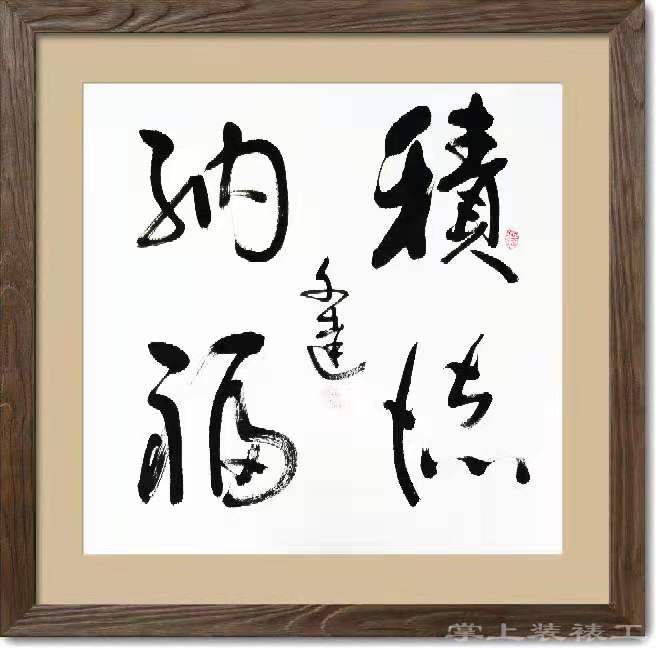 積德
納福
掌上装裱工